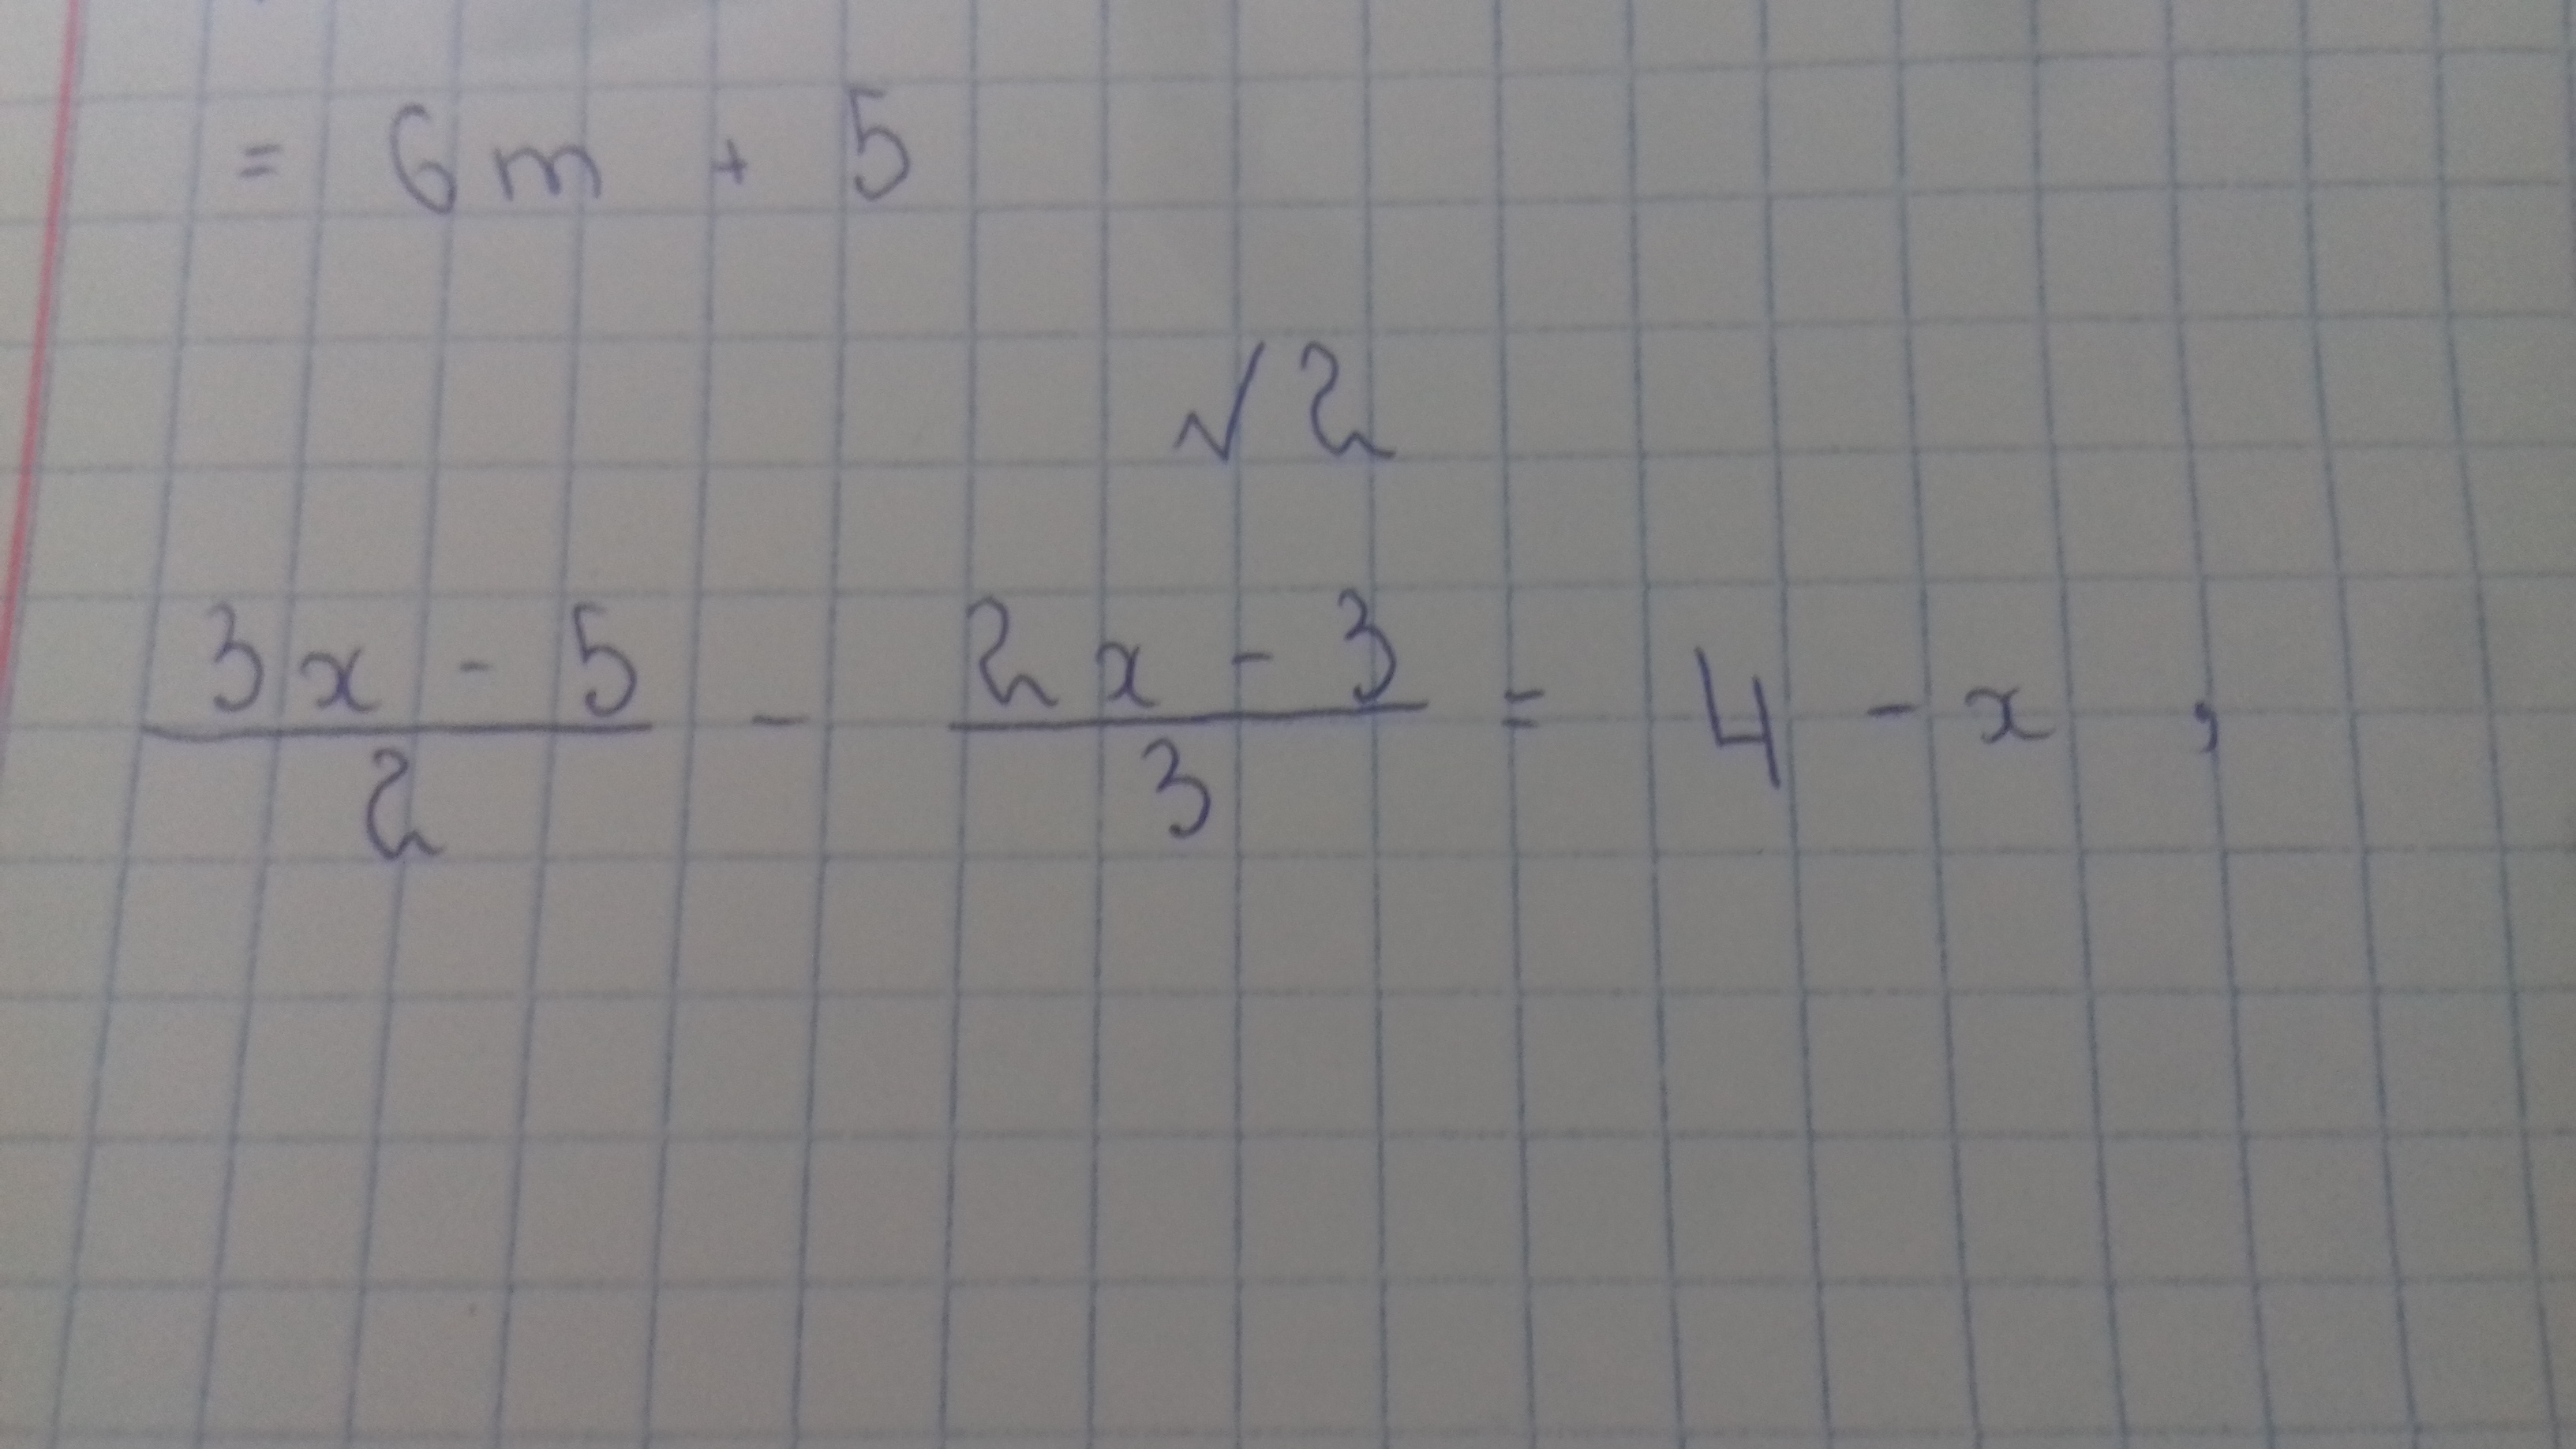 = 6m + 5
√2
(3x - 5)/2 - (2x - 3)/3 = 4 - x ,